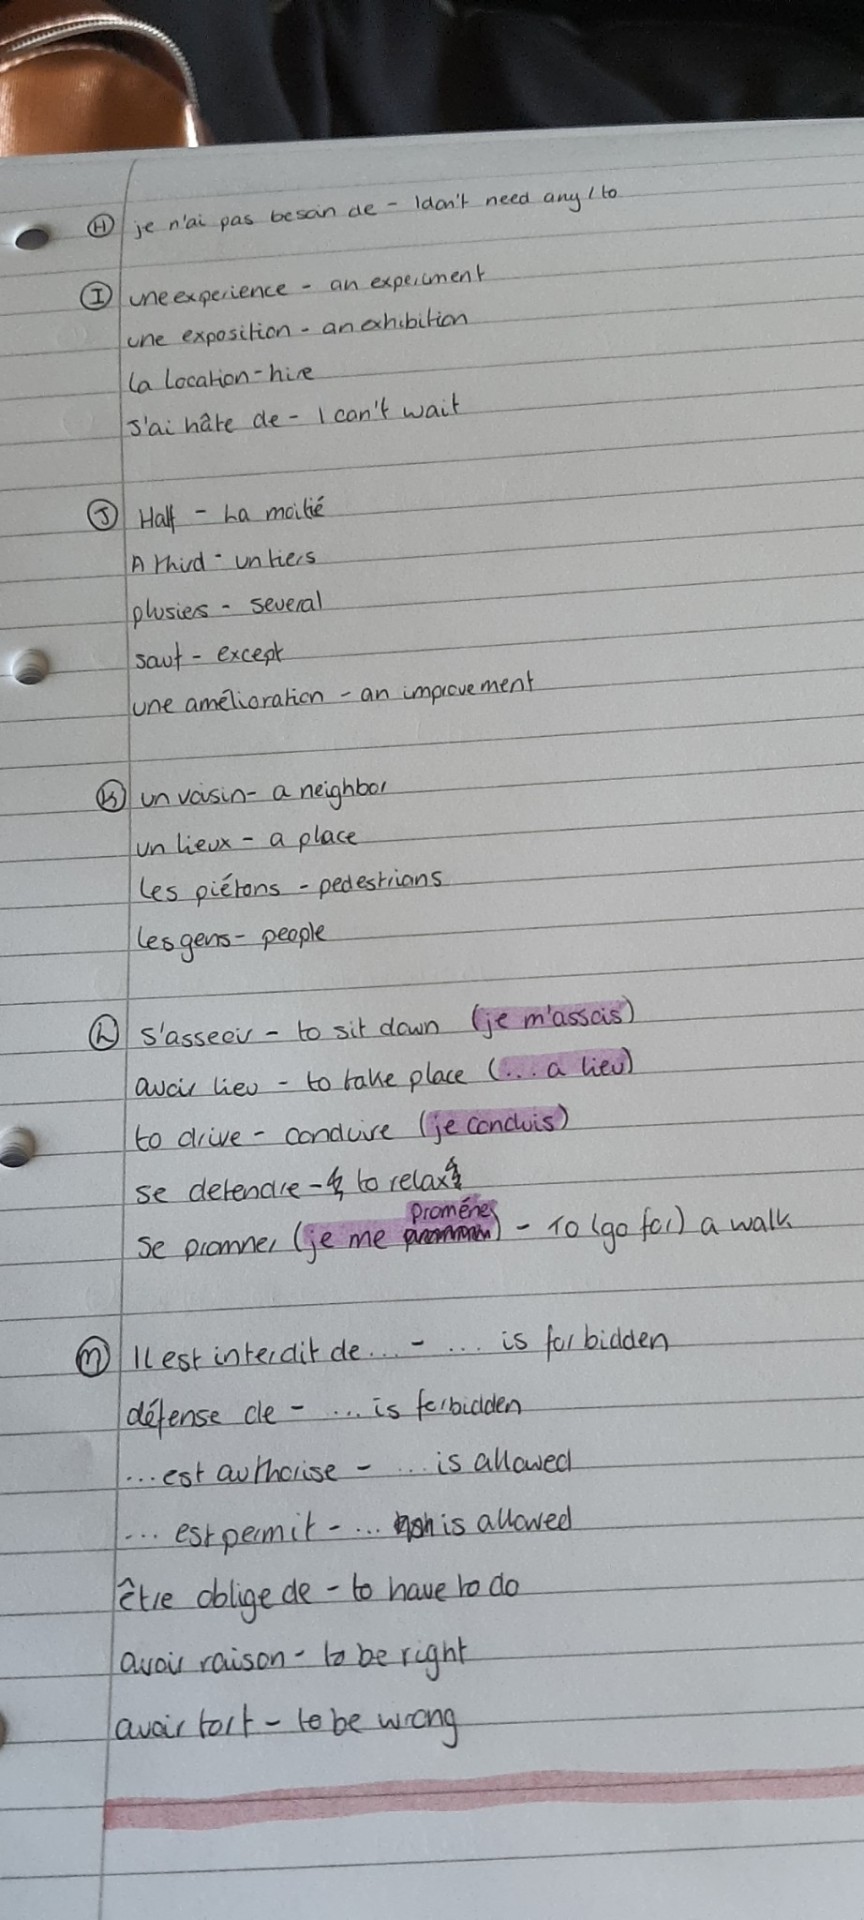 (H) je n'ai pas besoin de - I don't need any / to
(I) une experience - an experiment
une exposition - an exhibition
la location - hire
J'ai hâte de - I can't wait
(J) Half - La moitié
A third - un tiers
plusiers - several
sauf - except
une amélioration - an improvement
(K) un voisin - a neighbor
un lieux - a place
les piétons - pedestrians
les gens - people
(L) s'asseoir - to sit down (je m'assois)
avoir lieu - to take place (... a lieu)
to drive - conduire (je conduis)
se detendre - to relax
se promner (je me proméne) - To (go for) a walk
(M) Il est interdit de ... - ... is forbidden
défense de - ... is forbidden
... est authorise - ... is allowed
... est permit - ... is allowed
être oblige de - to have to do
avoir raison - to be right
avoir tort - to be wrong